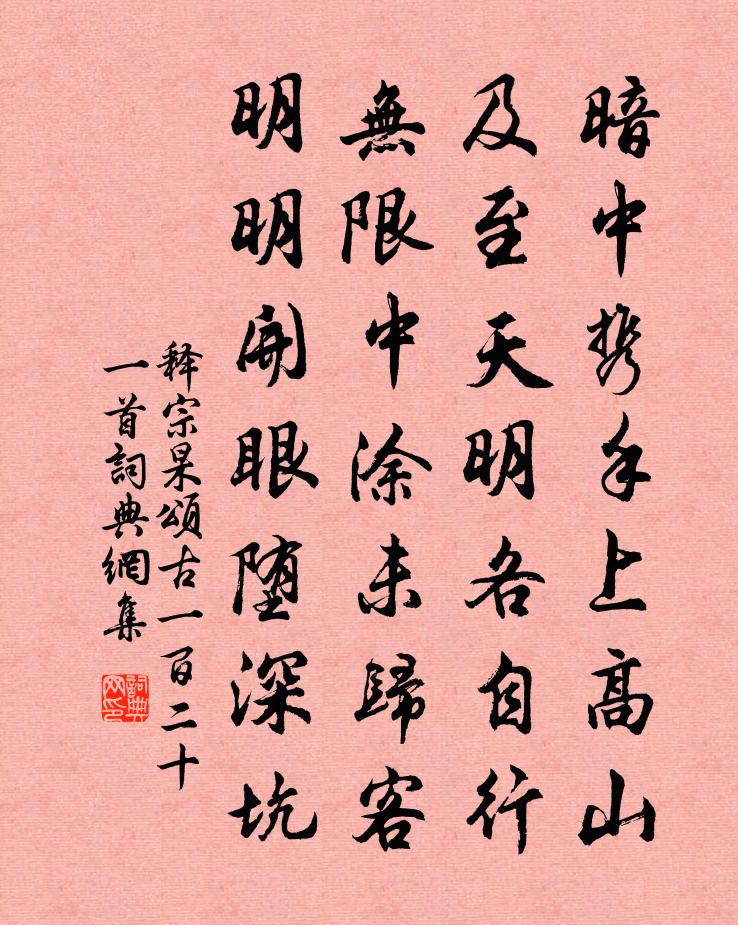 暗中攜手上高山
及至天明各自行
無限中涂未歸客
明明開眼堕深坑
释宗杲頌古一百二十
一首詞典網集
詞典网印